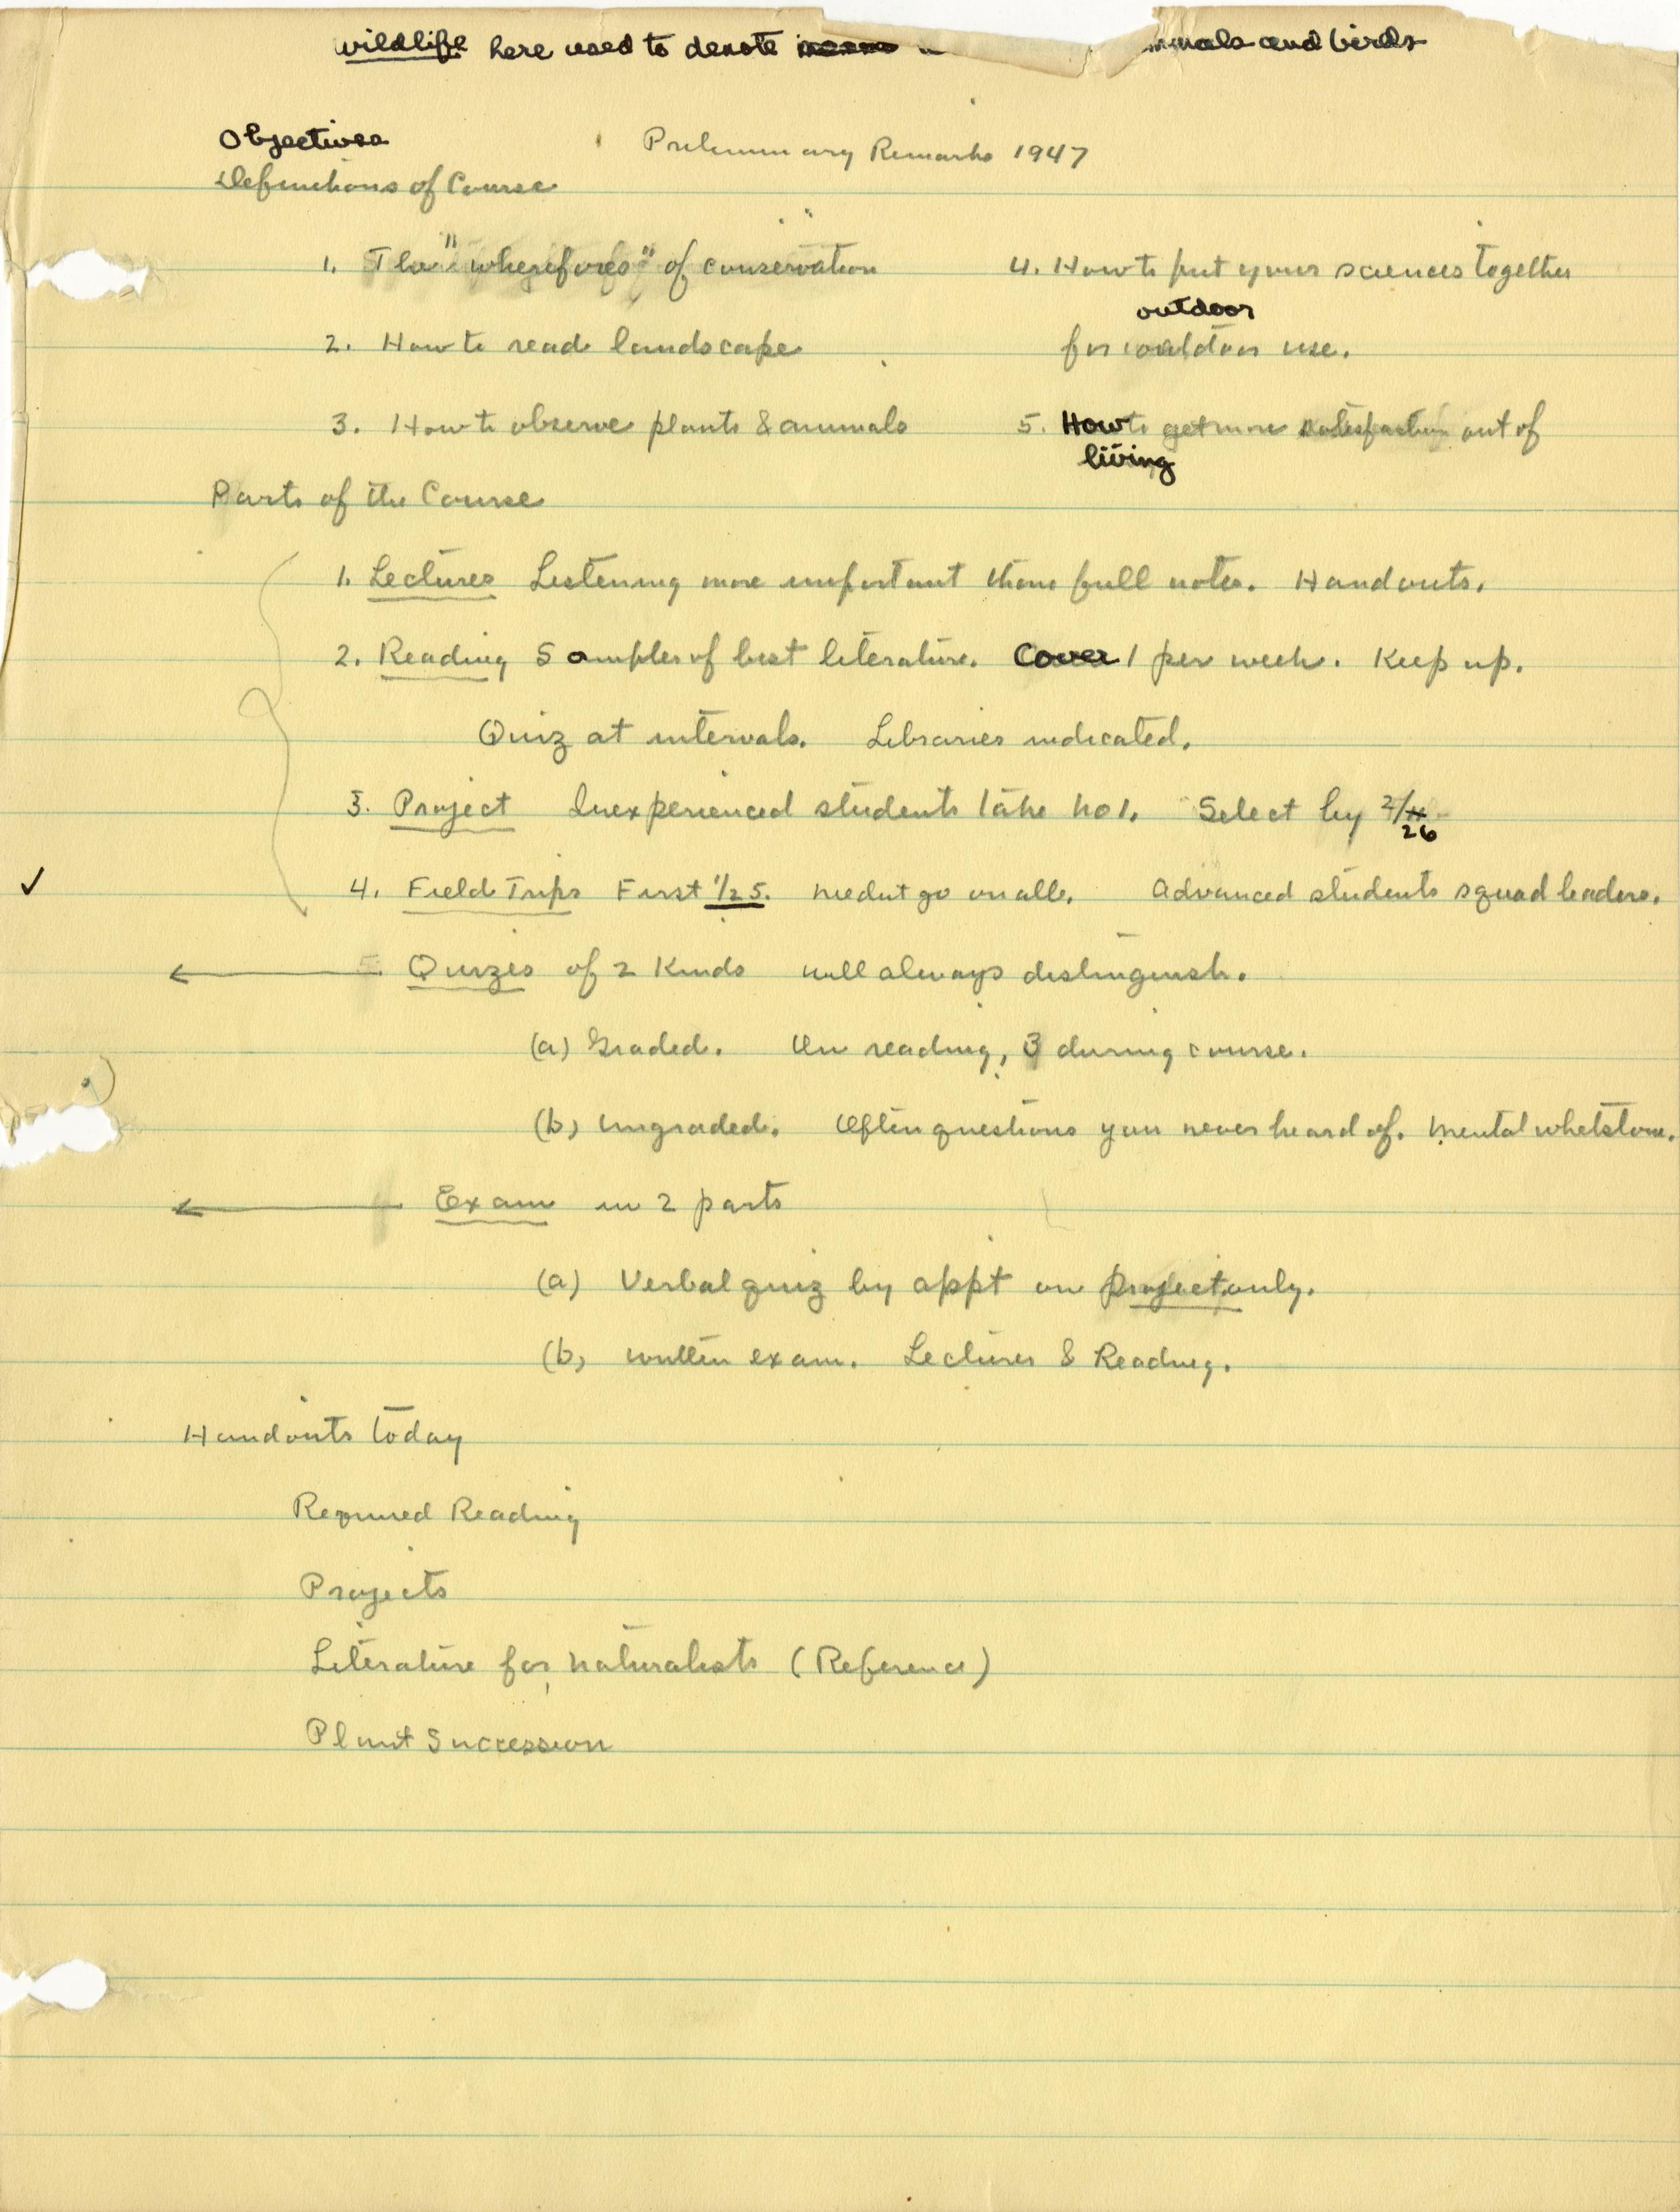 wildlife here used to denote and birds
Objectives
Preliminary Remarks 1947
Definitions of Course
1. The "wherefores" of conservation
2. How to read landscape
3. How to observe plants & animals
4. How to put your sciences together
outdoor
for outdoor use.
5. How to get more satisfaction out of
living
Parts of the Course
1. Lectures Listening more important than full notes. Handouts.
2. Reading Samples of best literature. Cover 1 per week. Keep up.
Quiz at intervals. Libraries indicated.
3. Project Inexperienced students take no 1. Select by 2/
26
✓ 4. Field Trips First 1/25. Neednt go on all. Advanced students squad leaders.
← Quizes of 2 Kinds will always distinguish.
(a) Graded. On reading, 3 during course.
(b) Ungraded. Often questions you never heard of. Mental whetstone.
← Exam in 2 parts
(a) Verbal quiz by appt on project only.
(b) written exam. Lectures & Reading.
Handouts today
Required Reading
Projects
Literature for Naturalists (Reference)
Plant Succession